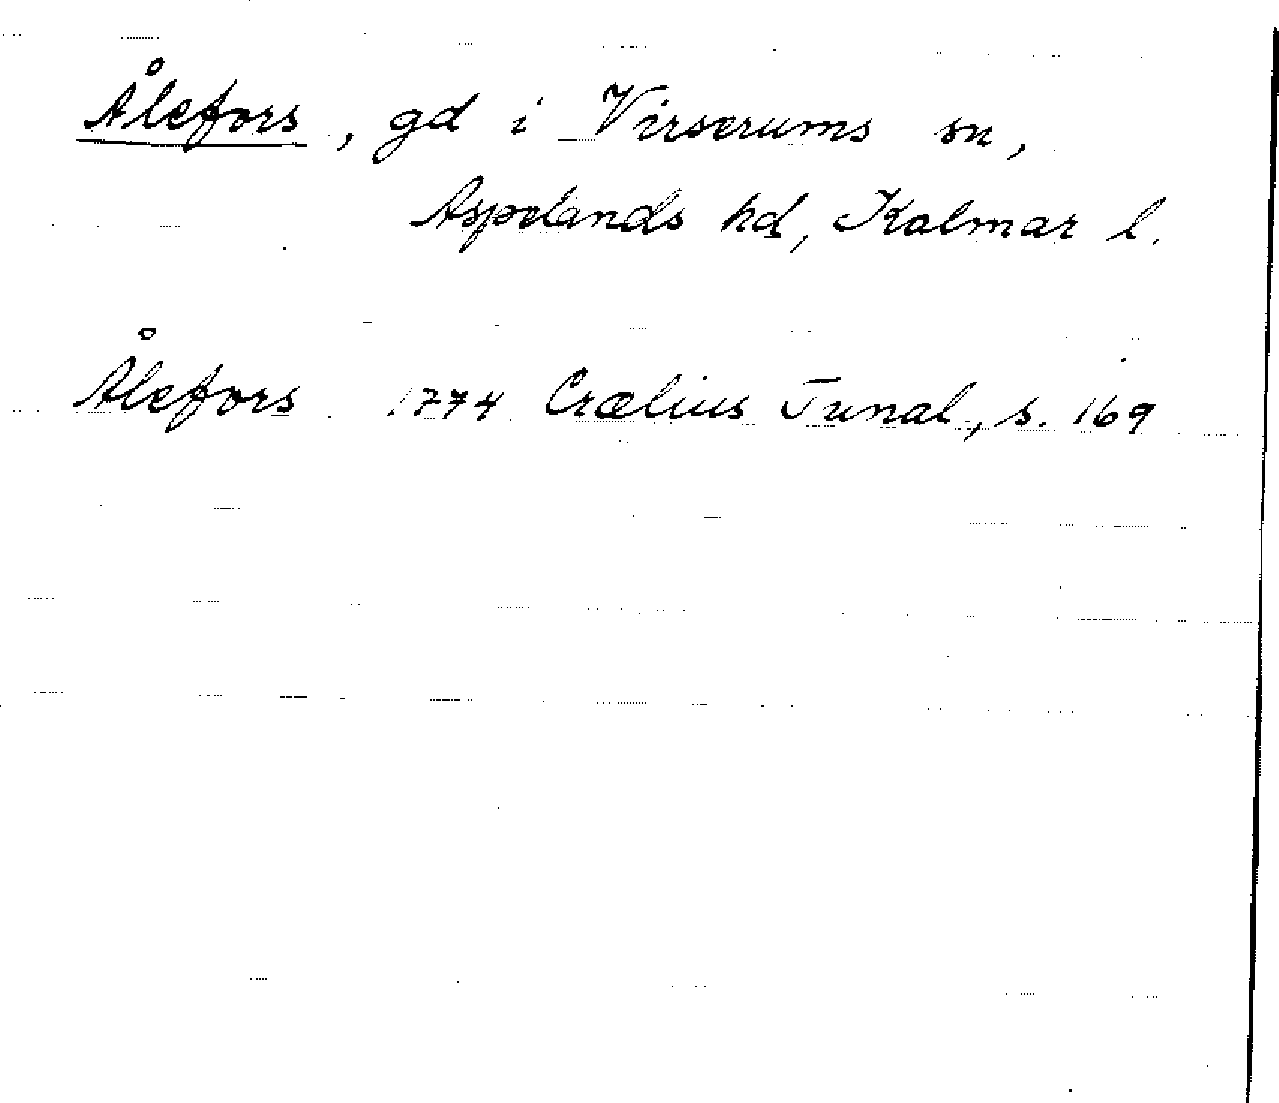 Ålefors, gd i Virserums sn,
Aspelands hd, Kalmar l.
Ålefors 1774 Crælius Tunal, s. 169